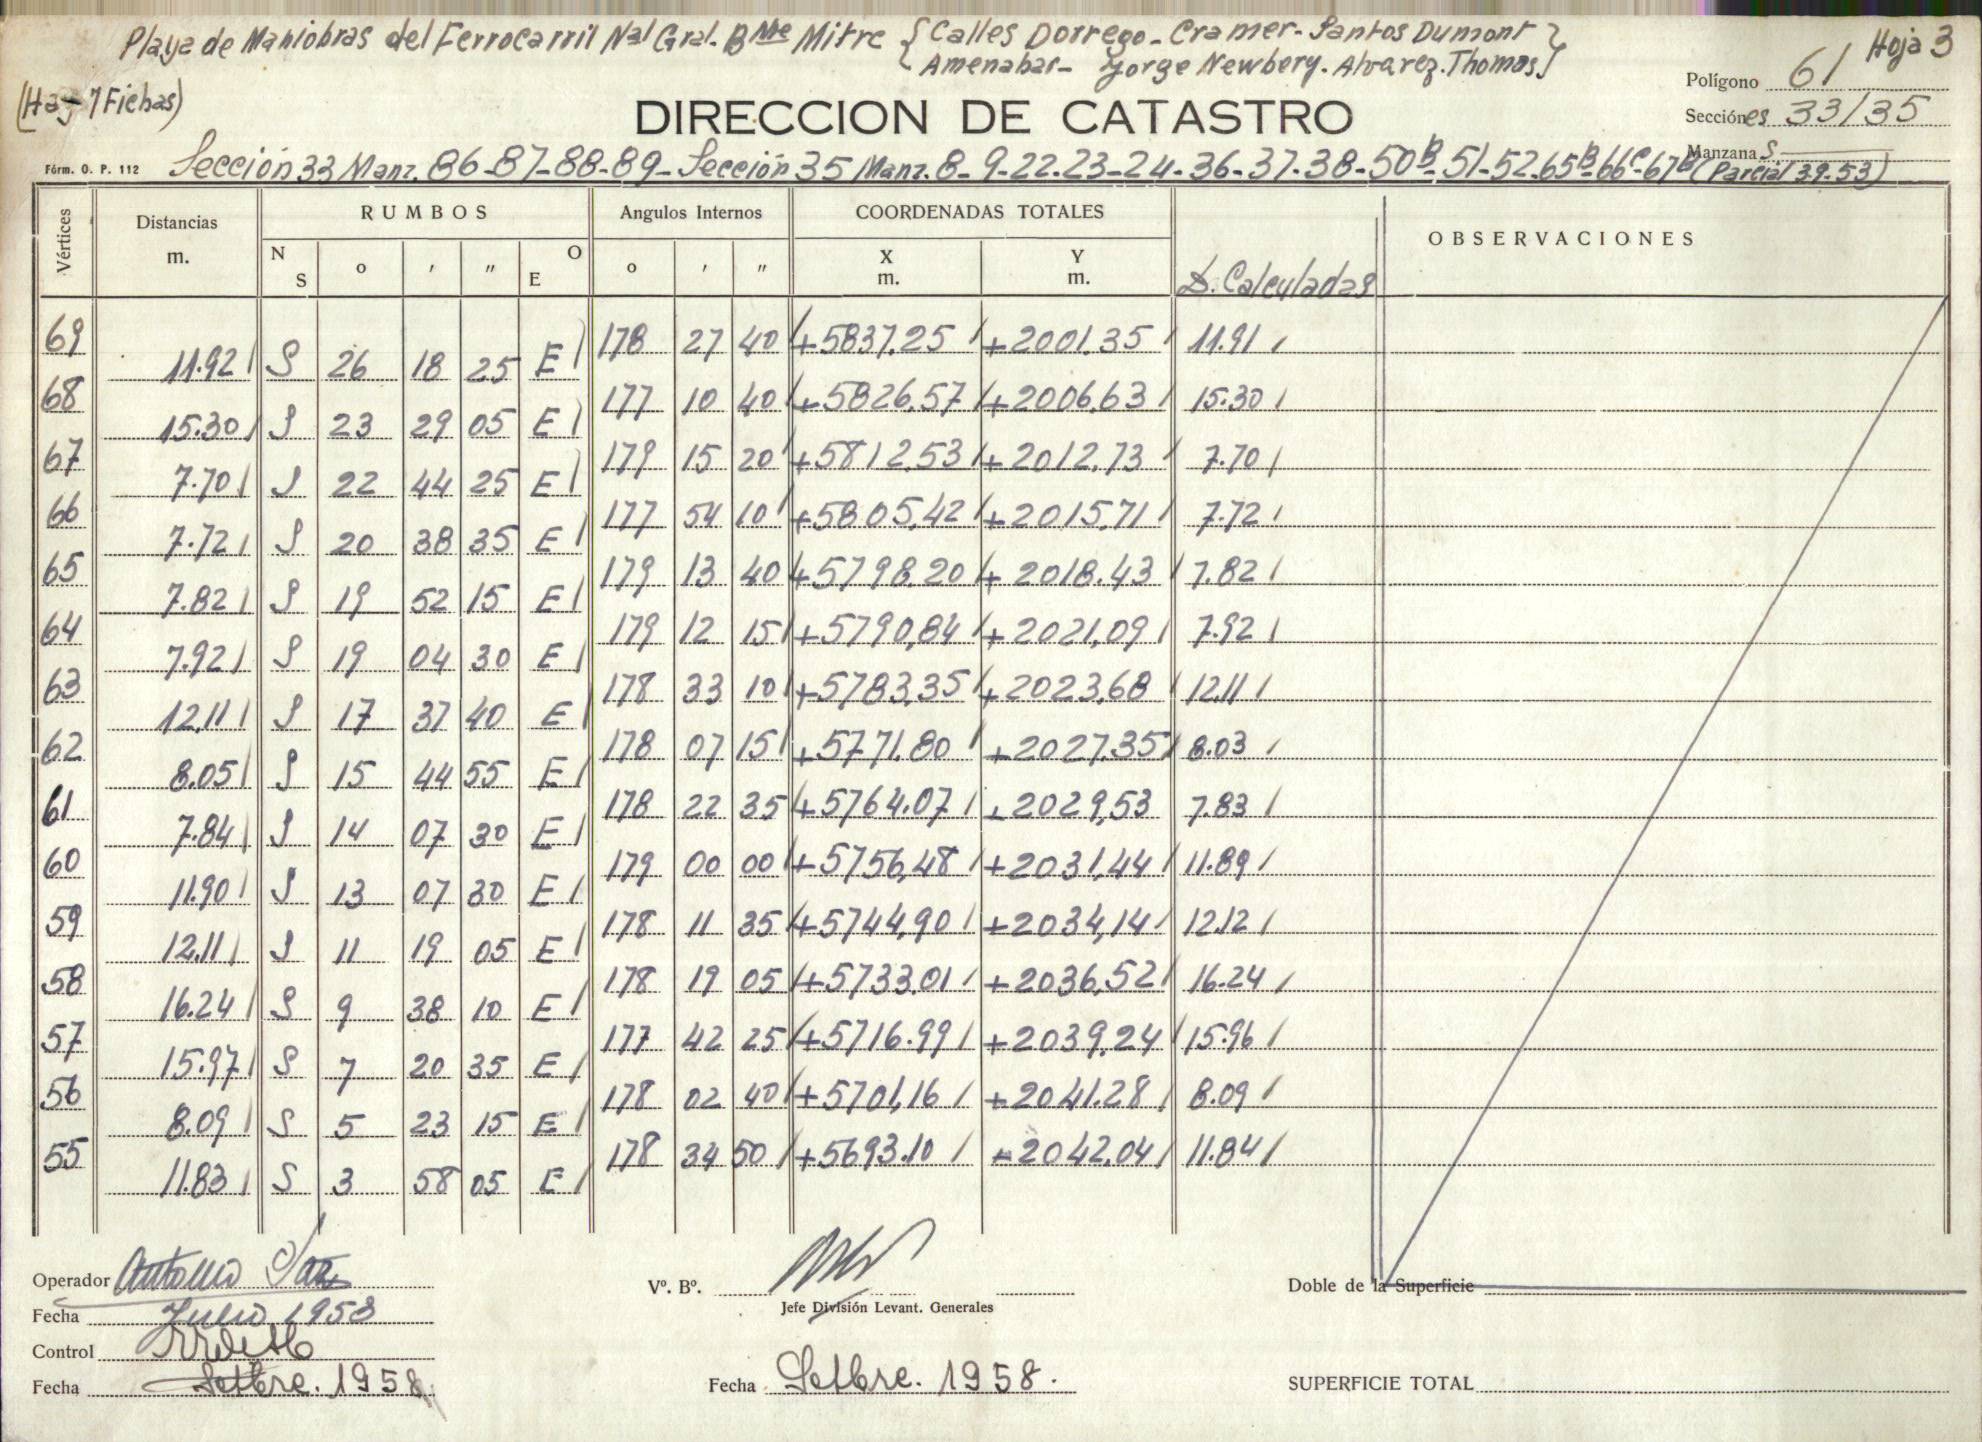 Playa de Maniobras del Ferrocarril Nal Gral. Bme Mitre { Calles Dorrego - Cramer - Santos Dumont
Amenabar - Jorge Newbery. Alvarez. Thomas }
Hoja 3
(Hay 7 Fichas)
Polígono 61
DIRECCION DE CATASTRO
Secciónes 33/35
Manzanas
Fórm. O. P. 112 Sección 33 Manz. 86-87-88-89- Sección 35 Manz. 8-9-22-23-24-36-37-38-50B-51-52-65B-66C-67B (Parcial 39-53)
Vértices Distancias m. RUMBOS Angulos Internos COORDENADAS TOTALES D. Calculadas OBSERVACIONES
N S o ′ ″ O E o ′ ″ X m. Y m.
69 178 27 40 +5837.25 +2001.35 11.91
11.92 S 26 18 25 E
68 177 10 40 +5826.57 +2006.63 15.30
15.30 S 23 29 05 E
67 179 15 20 +5812.53 +2012.73 7.70
7.70 S 22 44 25 E
66 177 54 10 +5805.42 +2015.71 7.72
7.72 S 20 38 35 E
65 179 13 40 +5798.20 +2018.43 7.82
7.82 S 19 52 15 E
64 179 12 15 +5790.84 +2021.09 7.92
7.92 S 19 04 30 E
63 178 33 10 +5783.35 +2023.68 12.11
12.11 S 17 37 40 E
62 178 07 15 +5771.80 +2027.35 8.03
8.05 S 15 44 55 E
61 178 22 35 +5764.07 +2029.53 7.83
7.84 S 14 07 30 E
60 179 00 00 +5756.48 +2031.44 11.89
11.90 S 13 07 30 E
59 178 11 35 +5744.90 +2034.14 12.12
12.11 S 11 19 05 E
58 178 19 05 +5733.01 +2036.52 16.24
16.24 S 9 38 10 E
57 177 42 25 +5716.99 +2039.24 15.96
15.97 S 7 20 35 E
56 178 02 40 +5701.16 +2041.28 8.09
8.09 S 5 23 15 E
55 178 34 50 +5693.10 +2042.04 11.84
11.83 S 3 58 05 E
Operador Antonio
Vº. Bº.
Doble de la Superficie
Jefe División Levant. Generales
Fecha Julio 1958
Control
Fecha Setbre. 1958
Fecha Setbre. 1958.
SUPERFICIE TOTAL